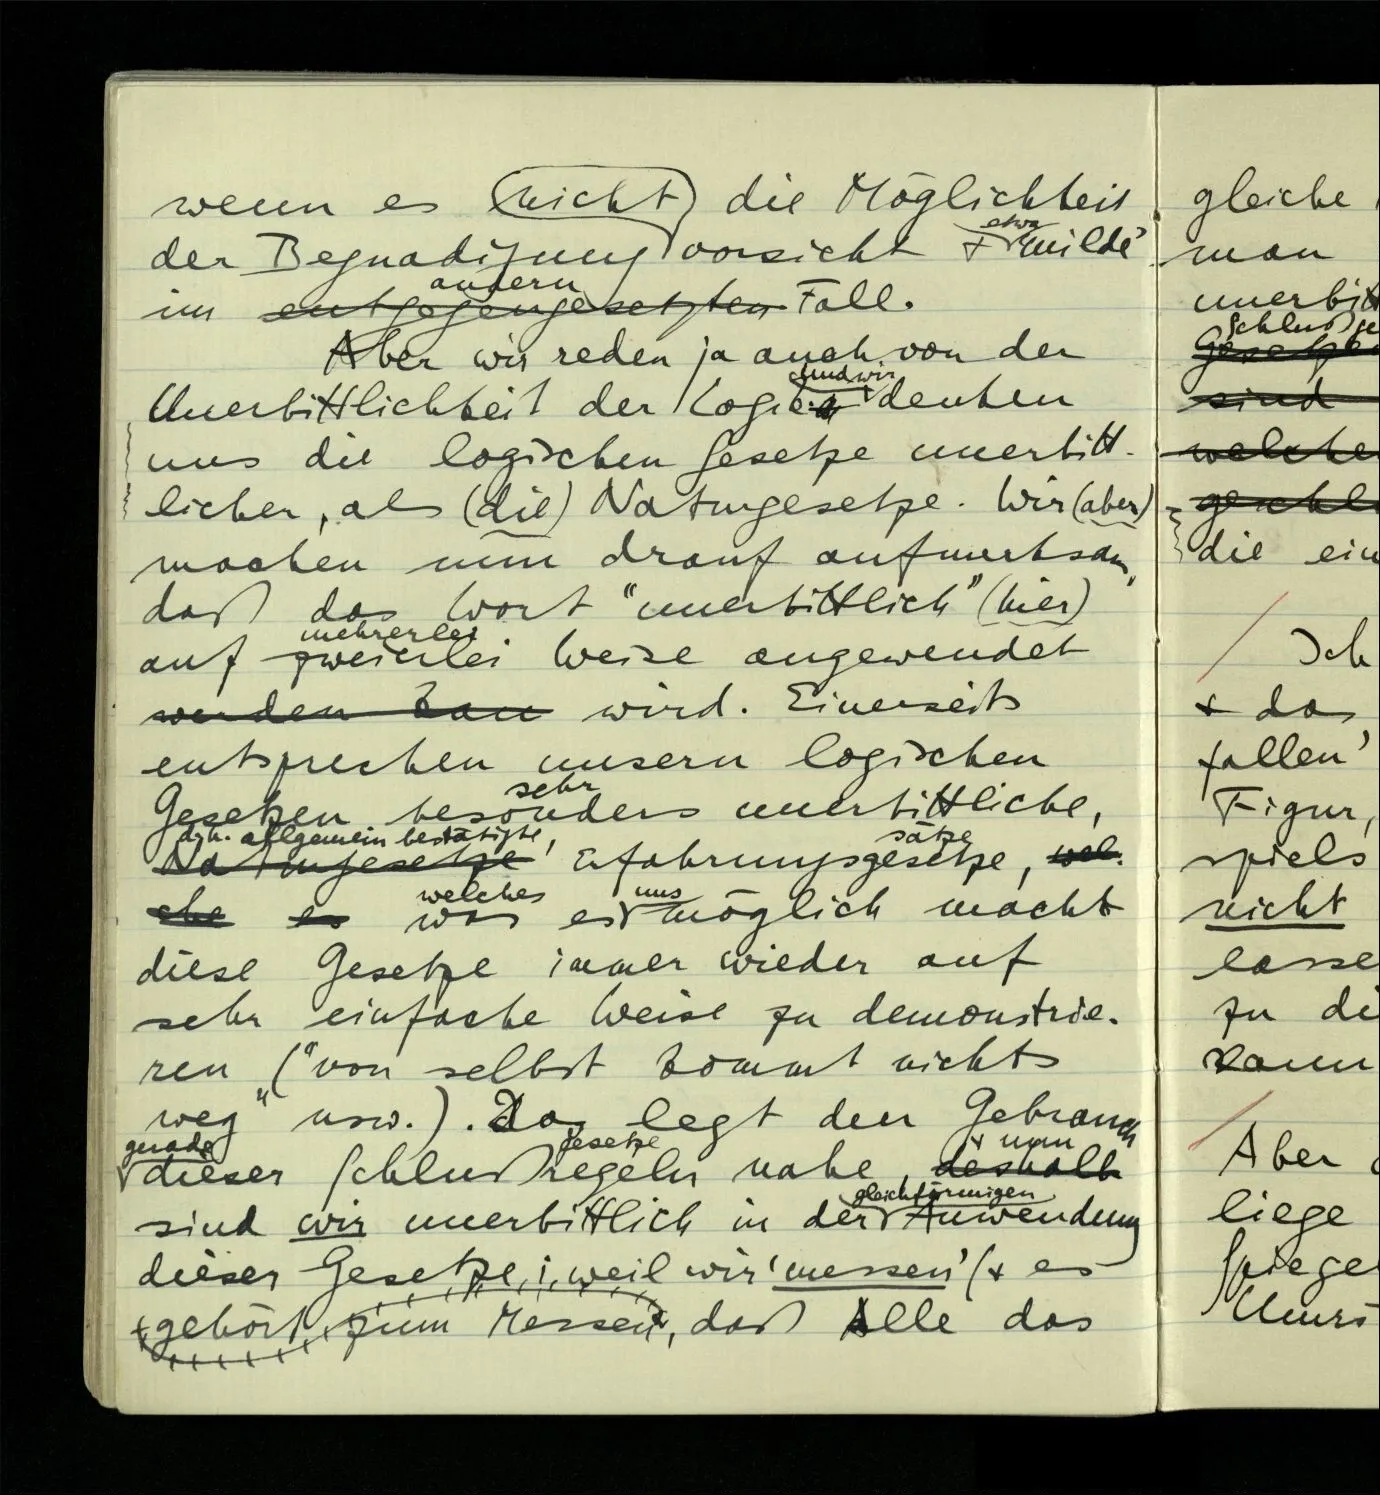 wenn es nicht die Möglichkeit
der Begnadigung vorsieht + etwa 'milde'
im entgegengesetzten andern Fall.
Aber wir reden ja auch von der
Unerbittlichkeit der Logik und wir denken
uns die logischen Gesetze unerbitt-
licher, als (die) Naturgesetze. Wir (aber)
machen nun drauf aufmerksam,
daß das Wort "unerbittlich" (hier)
auf zweierlei mehrerlei Weise angewendet
werden kann wird. Einerseits
entsprechen unsern logischen
Gesetzen besonders sehr unerbittliche,
Naturgesetze d.h. allgemein bestätigte, Erfahrungsgesetze sätze, wel-
che es was welches es uns möglich macht
diese Gesetze immer wieder auf
sehr einfache Weise zu demonstrie-
ren ("von selbst kommt nichts
weg" usw.). Das legt den Gebrauch
gerade dieser Schlußregeln gesetze nahe, deshalb + nun
sind wir unerbittlich in der gleichförmigen Anwendung
dieser Gesetze, weil wir 'messen' (+ es
gehört zum Messen, daß Alle das
gleiche
man
unerbitt
Schlußge
Gesetze
sind
welche
die ein
Ich
+ das
fallen'
Figur,
spiels
nicht
lasse
zu di
kann
Aber
liege
Spiege
Umris